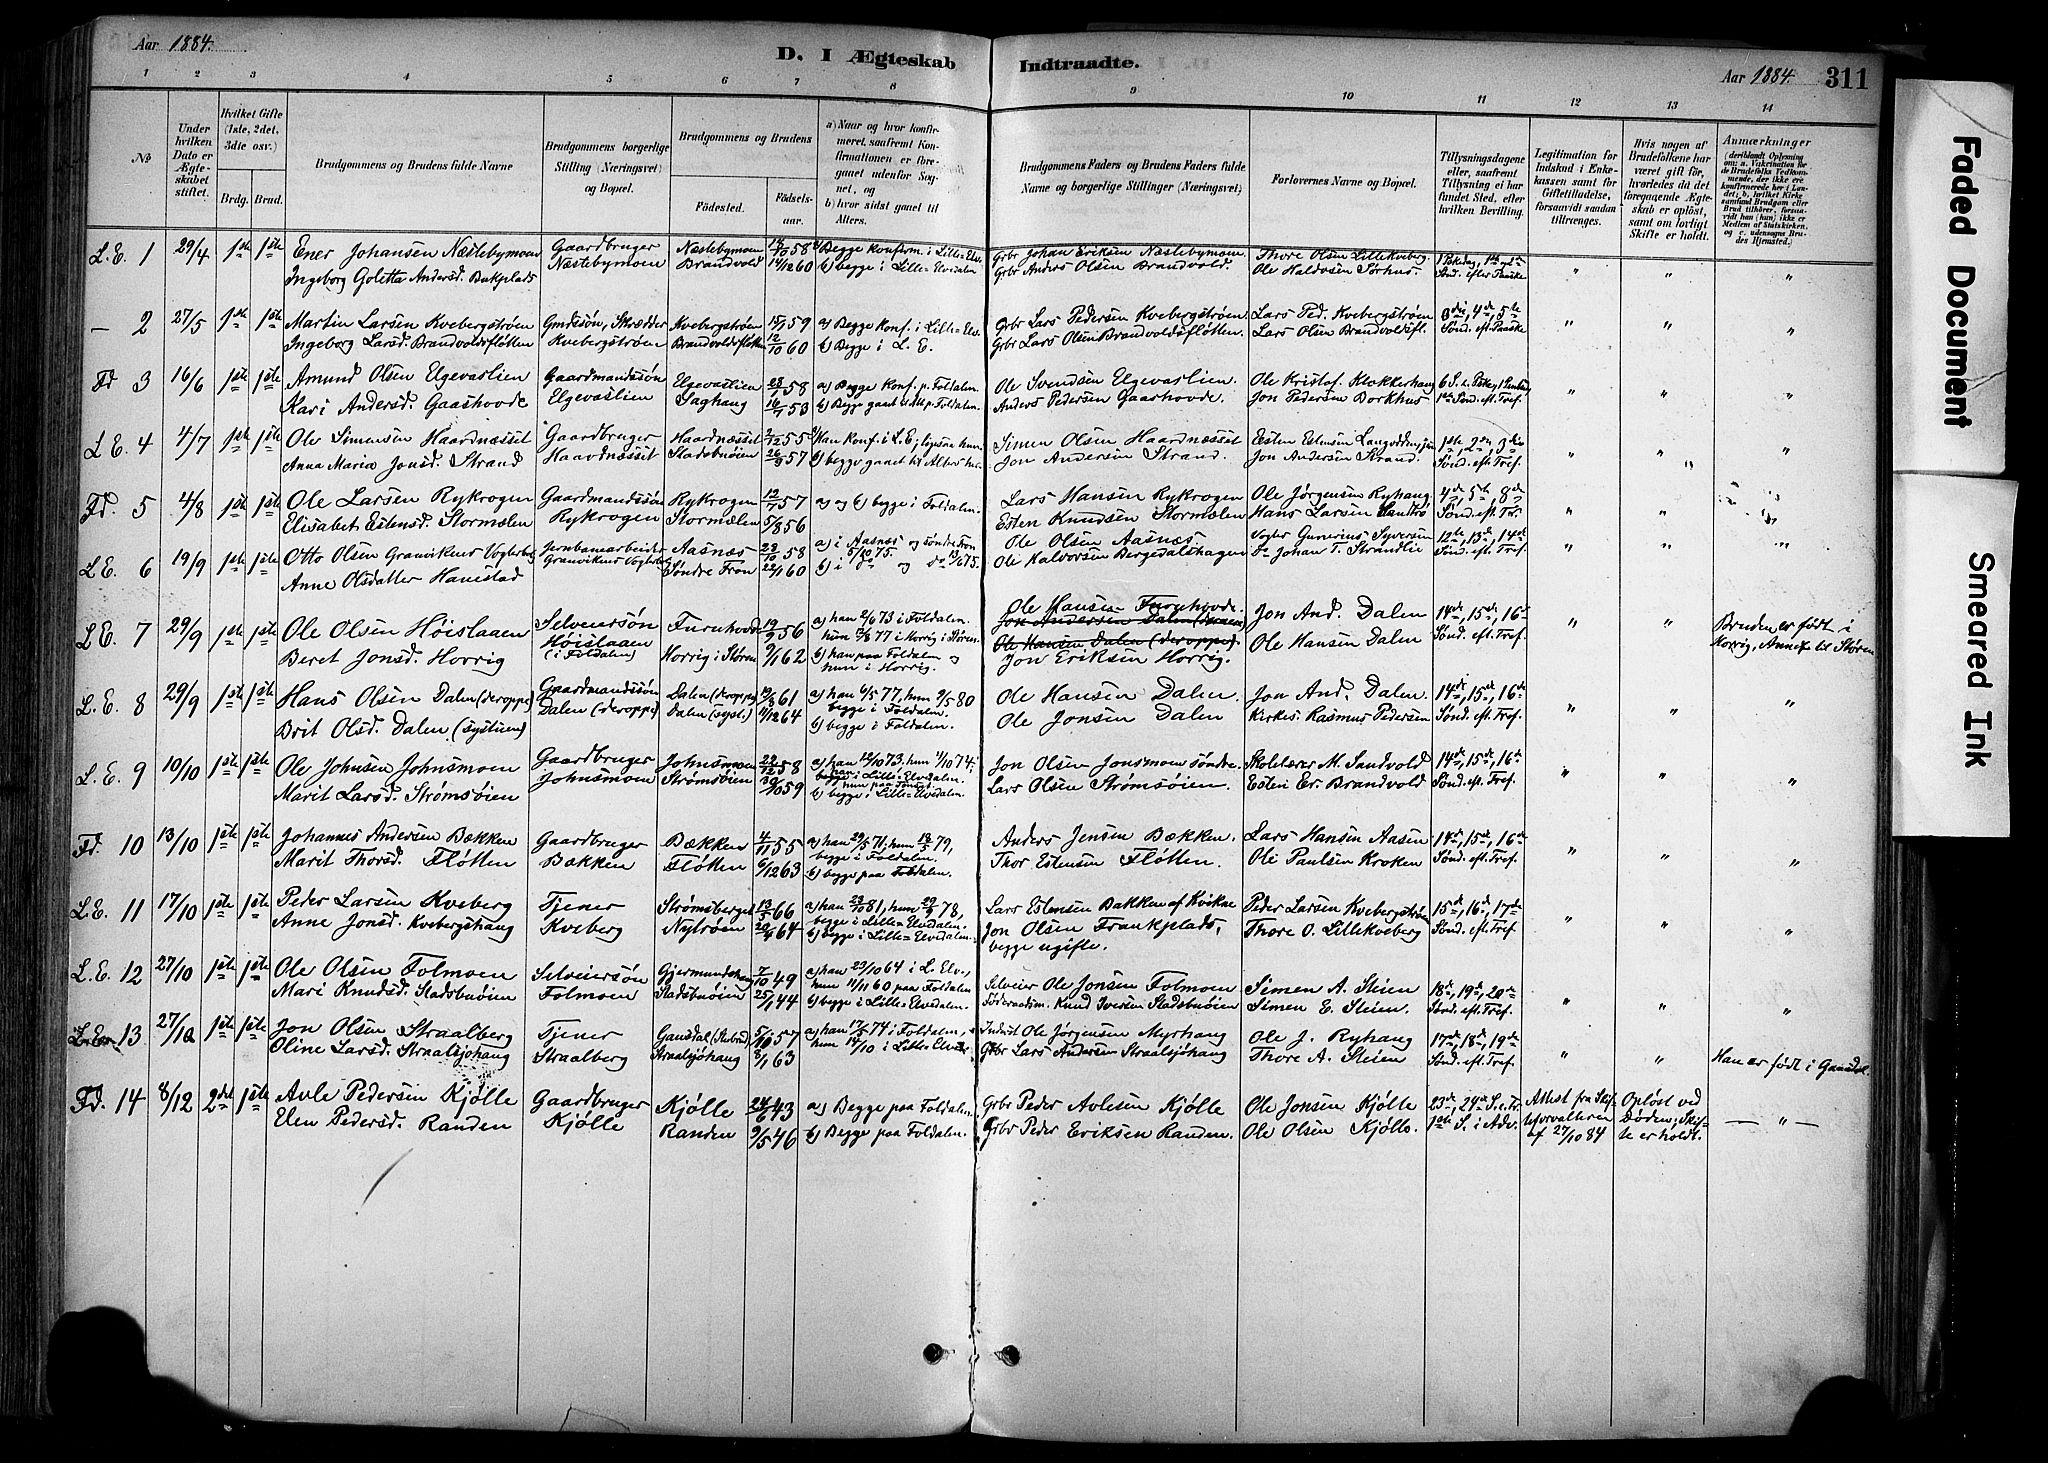 Aar 1884.
D. I Ægteskab Indtraadte.
Aar 1884.
311
1 2 3 4 5 6 7 8 9 10 11 12 13 14
No
Under hvilken Dato er Ægteskabet stiftet.
Hvilket Gifte (1ste, 2det, 3die osv.)
Brdg. Brud.
Brudgommens og Brudens fulde Navne
Brudgommens borgerlige Stilling (Næringsvei) og Bopæl.
Brudgommens og Brudens
Fødested.
Fødselsaar.
a) Naar og hvor konfirmeret, saafremt Konfirmationen er foregaaet udenfor Sognet, og
b) hvor sidst gaaet til Alters.
Brudgommens Faders og Brudens Faders fulde Navne og borgerlige Stillinger (Næringsvei)
Forlovernes Navne og Bopæl.
Tillysningsdagene eller, saafremt Tillysning ei har fundet Sted, efter hvilken Bevilling.
Legitimation for Indskud i Enkekassen samt for Giftetilladelse, forsaavidt saadan tiltrænges.
Hvis nogen af Brudefolkene har været gift før, hvorledes da det foregaaende Ægteskab er opløst, samt om lovligt Skifte er holdt.
Anmærkninger
L.E. 1 29/4 1ste 1ste Ener Johansen Næstebymoen Gaardbruger Næstebymoen 58 a) Begge konfirm. i Lille-Elv. Grbr Johan Eriksen Næstebymoen. Thore Olsen Lillekveberg " " "
Ingeborg Goletta Andersd. Bakplads Næstebymoen Brandvold 14/12 60 b) begge i Lille-Elvedalen Grbr Anders Olsen Brandvold. Ole Haldosen Sørhus.
— 2 27/5 1ste 1ste Martin Larsen Kvebergstrøen Gmdssøn, Skrædder Kvebergstrøen 59 a) Begge konf. i Lille-Elv. Grbr Lars Pedersen Kvebergstrøen Lars Ped. Kvebergstrøen 3die, 4de, 5te " " "
Ingeborg Larsd. Brandvoldsfløtten Kvebergstrøen Brandvoldsfløtten 12/10 60 b) Begge i L. E. Grbr Lars Olsen Brandvoldsfløtten. Lars Olsen Brandvoldsfl. Sønd. eft. Paaske
Fd 3 16/6 1ste 1ste Amund Olsen Elgevaslien Gaardmandssøn Elgevaslien 58 a) Begge konf. p. Foldalen. Ole Svendsen Elgevaslien. Ole Kristof. Klokkerhaug " " "
Kari Andersd. Gaashovde Elgevaslien Saghaug 53 b) Begge gaaet til Alt p. Foldalen. Anders Pedersen Gaashovde. Jon Pedersen Borkhus 1ste Sønd. eft. Tref.
L E. 4 4/7 1ste 1ste Ole Simensen Haardnæsset Gaardbruger Haardnæsset 2/12 55 Han konf. i L.E; ligesaa hun. Simen Olsen Haardnæsset Esten Estensen Langodden, 1ste, 2den, 3die " " "
Anna Maria Jonsd. Strand Haardnæsset Stadsbuøien 26/9 57 b) begge gaaet til Alters her. Jon Andersen Strand. Jon Andersen Strand. Sønd. eft. Tref.
Fd. 5 4/8 1ste 1ste Ole Larsen Rykrogen Gaardmandssøn Rykrogen 12/7 57 a og b) begge i Foldalen. Lars Hansen Rykrogen Ole Jørgensen Ryhaug 4de, 5te, 8de " " "
Elisabet Estensd. Stormælen Rykrogen Stormælen 5/8 56 Esten Knudsen Stormælen Hans Larsen Sønd. eft. Tr.
L E. 6 19/9 1ste 1ste Otto Olsen Granvikens Vogterb. Jernbanearbeider Aasnæs 58 a) i Aasnæs og søndre Fron Ole Olsen Aasnæs Vogter Gunerius Syversen 12te, 13de, 14de " " "
Anne Olsdatter Hanestad Granvikens Vogterb. Søndre Fron 22/1 60 Ole Halvorsen Bergedalshagen Do Johan T. Strandlie Sønd. eft. Tref.
L E. 7 29/9 1ste 1ste Ole Olsen Høislaaen Selveiersøn Furuhovde 19/9 56 a) han 2/6 73 i Foldalen. Ole Hansen Furuhovde. Jon And. Dalen 14de, 15de, 16de " " " Bruden er født i
Høislaaen hun 77 i Horrig i Støren. Jon Andersen Dalen
Beret Jonsd. Horrig (i Foldalen) Horrig i Støren 9/1 62 b) han paa Foldalen og Ole Hansen Dalen (deroppe). Ole Hansen Dalen Sønd. eft. Tref. Horrig, Annex til Støren
hun i Horrig. Jon Eriksen Horrig.
L. E. 8 29/9 1ste 1ste Hans Olsen Dalen (deroppe) Gaardmandssøn Dalen (deroppe) 61 a) han 6/5 77, hun 9/5 80 Ole Hansen Dalen. Jon And. Dalen. 14de, 15de, 16de " " "
Brit Olsd. Dalen (systuen) Dalen (deroppe) Dalen (syst.) 11/12 64 begge i Foldalen. Ole Jonsen Dalen Kirkes. Rasmus Pedersen Sønd. eft. Tref.
b) begge i Foldalen.
L. E. 9 10/10 1ste 1ste Ole Johnsen Johnsmoen Gaardbruger Johnsmoen 22/12 58 a) han 12/10 73, hun 11/10 74; Jon Olsen Jonsmoen søndre. Skolelærer M. Sandvold 14de, 15de, 16de " " "
Marit Larsd. Strømsøien Johnsmoen Strømsøien 59 b) begge i Lille-Elvedalen. Lars Olsen Strømsøien. Esten Er. Brandvold Sønd. eft. Tref.
Fd. 10 13/10 1ste 1ste Johannes Andersen Bækken Gaardbruger Bækken 4/11 55 a) han 29/5 71, hun 18/5 79, Anders Jensen Bækken. Lars Hansen Aasen 14de, 15de, 16de " " "
Marit Thorsd. Fløtten Bækken Fløtten 6/12 63 begge i Foldalen. Thor Estensen Fløtten. Ole Paulsen Kroken Sønd. eft. Tref.
b) begge paa Foldalen.
L.E. 11 17/10 1ste 1ste Peder Larsen Kveberg Tjener Strømsberget 13/5 66 a) han 23/10 81, hun 29/9 78, Lars Estensen Bakken af Kvikne Peder Larsen Kvebergstrøen 15de, 16de, 17de " " "
Anne Jonsd. Kvebergshaug Kveberg Nytrøen 64 begge i Lille-Elvedalen. Jon Olsen Frankplads, Thore O. Lillekveberg Sønd. eft. Tref.
b) begge i Lille-Elvedalen. begge ugifte.
L.E. 12 27/10 1ste 1ste Ole Olsen Folmoen Selveiersøn Gjermundshaug 7/10 49 a) han 23/10 64 i L. Elv., Selveier Ole Jonsen Folmoen Simen A. Steien 18de, 19de, 20de " " "
Mari Knudsd. Stadsbuøien Folmoen Stadsbuøien 44 hun 11/11 60 paa Foldalen Knud Iversen Stadsbuøien Simen E. Steien. Sønd. eft. Tref.
b) begge i Lille-Elvedalen.
L.E. 13 27/10 1ste 1ste Jon Olsen Straalberg Tjener 5/10 57 a) han 17/5 74 i Foldalen, Inderst Ole Jørgensen Myrhaug Ole J. Ryhaug 17de, 18de, 19de " "
Oline Larsd. Straalsjøhaug Straalberg Straalsjøhaug 63 hun 14/10 i Lille-Elvedal. Grbr Lars Andersen Straalsjøhaug Thore A. Steien Sønd. eft. Tref. Han er født i Gausdal.
Fd. 14 8/12 2det 1ste Avle Pedersen Kjølle Gaardbruger Kjølle 24/6 43 a) Begge paa Foldalen. Grbr Peder Avlesen Kjølle Ole Jonsen Kjølle 23de, 24de S. e. Tr. Attest fra Skif- Opløst ved — " —
Elen Pedersd. Randen Kjølle Randen 9/5 46 b) Begge paa Foldalen. Grbr Peder Eriksen Randen. Ole Olsen Kjølle. 1ste S. i Adv. teforvalteren Døden; Skif-
af 27/10 84 te er holdt.
Faded Document
Smeared Ink